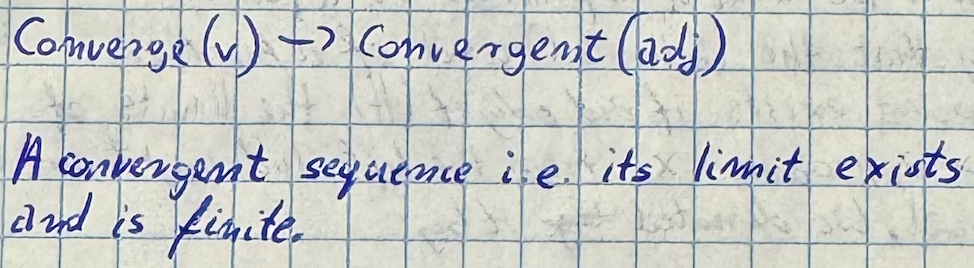 Converge (v) -> Convergent (adj)
A convergent sequence i.e. its limit exists
and is finite.